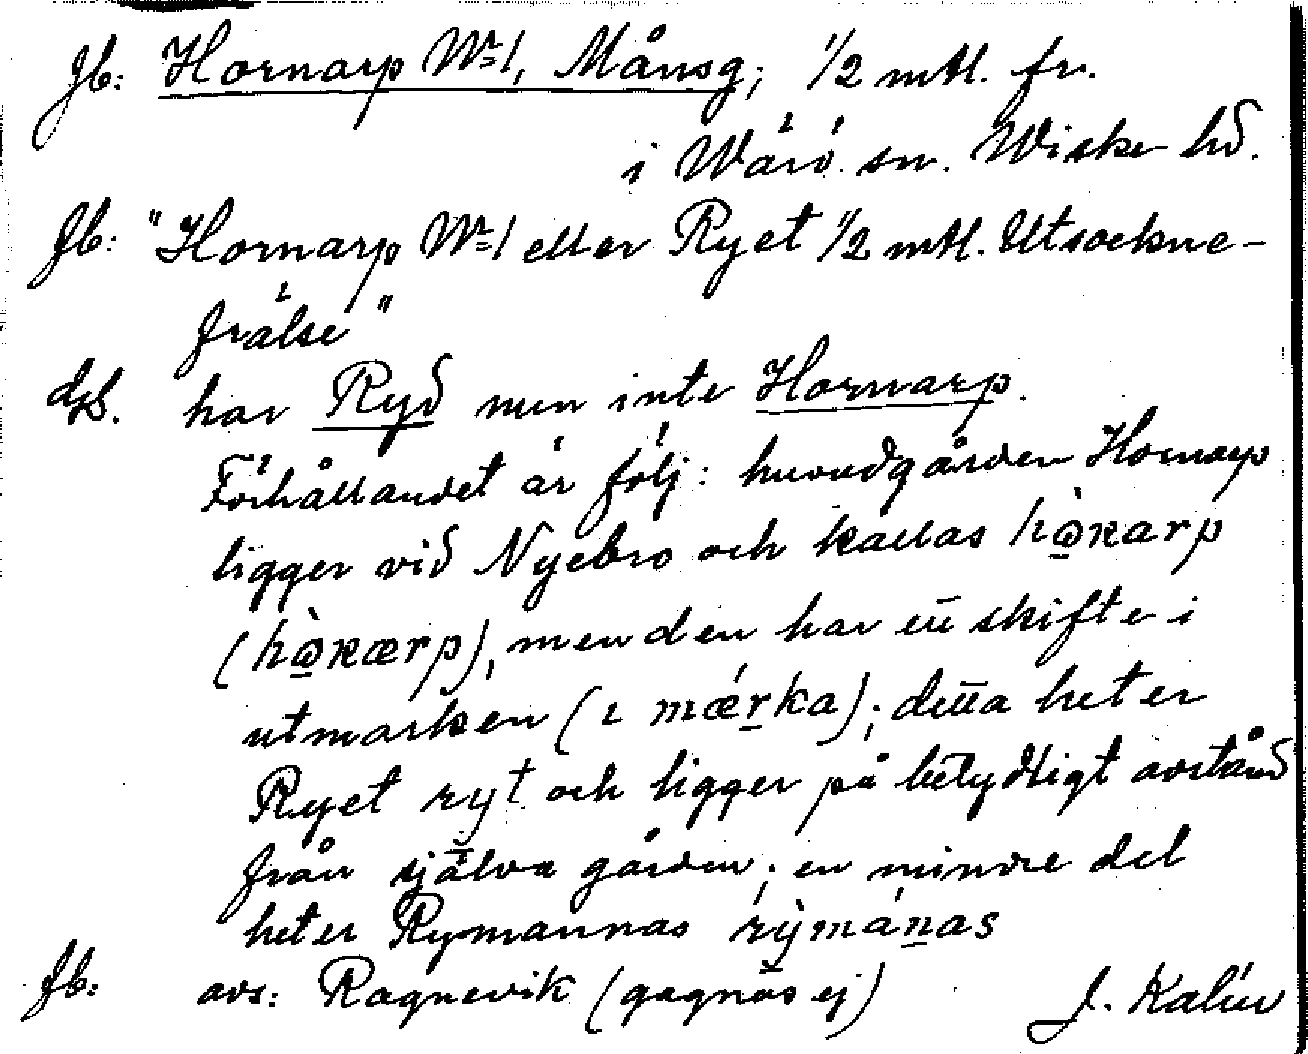 Jb: Hornarp N=1, Månsg; 1/2 mtl. fr.
i Wärö sn. Wiske hd.
Jb: "Hornarp N=1 eller Ryet 1/2 mtl. Utsockne-
frälse"
dsb. har Ryd men inte Hornarp.
Förhållandet är följ: huvudgården Hornarp
ligger vid Nyebro och kallas
men den har ett skifte i
utmarken (ɩ mǽrka); detta heter
Ryet ryt och ligger på betydligt avstånd
från själva gården; en mindre del
heter Rymannas rỳmánas
fb: avs: Ragnevik (gagnäs ej) J. Kalén